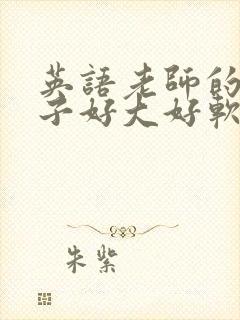 英語老師的
子好大好軟
朱紫